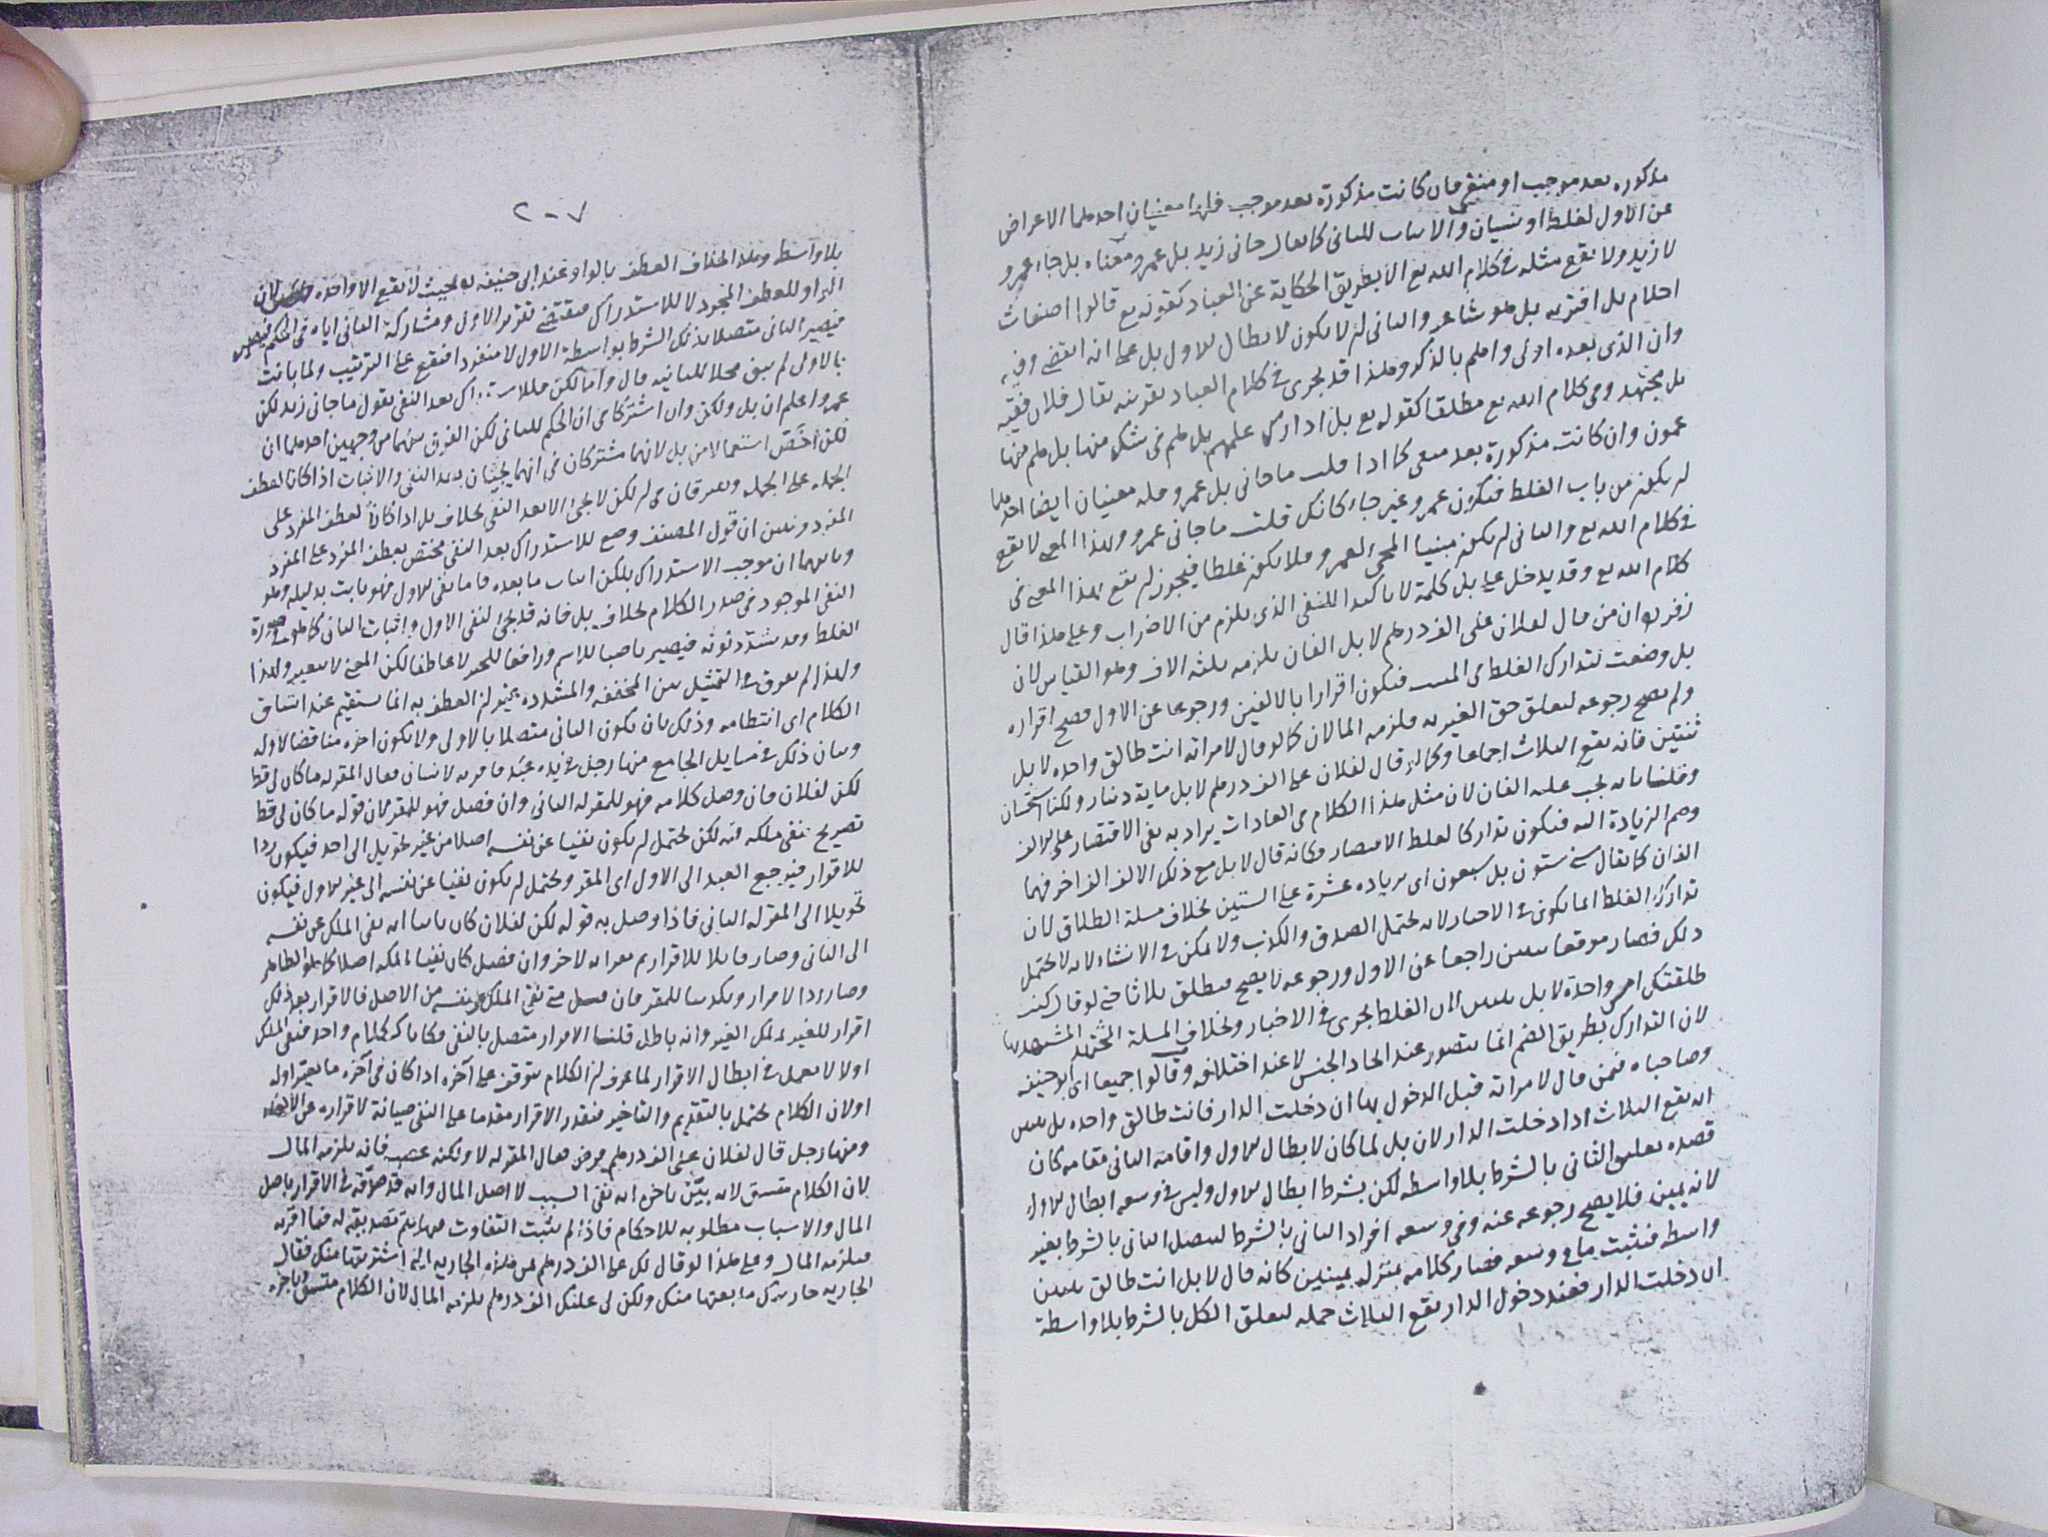 مذكوره بعد موجب او منفي فان كانت مذكورة بعد موجب فلها معنيان احدهما الاعراض
عن الاول لغلط او نسيان والاثبات للثاني كما يقال جاني زيد بل عمرو معناه بل جاء عمرو
لا زيد ولا يقع مثله في كلام الله تع الا بطريق الحكاية عن العباد كقوله تع قالوا اضغاث
احلام بل افتريه بل هو شاعر والثاني ان لا يكون لابطال الاول بل على انه انقضى وقته
وان الذي بعده اولى واهم بالذكر وهذا قد يجرى في كلام العباد بقرينه يقال فلان فقيه
بل مجتهد وفي كلام الله تع مطلقا كقوله تع بل ادارك علمهم بل هم في شك منها بل هم منها
عمون وان كانت مذكورة بعد منفي كما اذا قلت ما جاني بل عمرو فله معنيان ايضا احدهما
ان يكون من باب الغلط فيكون عمرو غير جاء كانك قلت ما جاني عمرو وهذا المعنى لا يقع
في كلام الله تع والثاني ان يكون مبنيا لمجئ لعمرو فلا يكون غلطا فيجوز ان يقع بهذا المعنى في
كلام الله تع وقد يدخل على بل كلمة لا تاكيدا للنفي الذي يلزم من الاضراب وعلى هذا قال
زفر ان من قال لفلان على الف درهم لا بل الفان يلزمه ثلثه الاف وهو القياس لان
بل وضعت لتدارك الغلط فيكون اقرارا بالالفين ورجوعا عن الاول فصح اقراره
ولم يصح رجوعه لتعلق حق الغير به فلزمه المالان كما لو قال لامراته انت طالق واحده لا بل
ثنتين فانه يقع الثلاث اجماعا وكما لو قال لفلان على الف درهم لا بل ماية دينار ولكنا استحسان
وقلنا بانه يجب عليه الفان لان مثل هذا الكلام في العادات يراد به نفي الاقتصار على الالف
وضم الزيادة اليه فيكون تداركا لغلط الاقتصار فكانه قال لا بل مع ذلك الالف الف اخر فهما
الفان كما يقال سني ستون بل سبعون اى بزياده عشرة على الستين بخلاف مسلة الطلاق لان
تدارك الغلط انما يكون في الاخبار لانه يحتمل الصدق والكذب ولا يمكن في الانشاء لانه لا يحتمل
ذلك فصار موقعا ثنتين راجعا عن الاول ورجوعه لا يصح فيطلق ثلاثا حتى لو قال كنت
طلقتك امس واحدة لا بل ثنتين لان الغلط يجرى في الاخبار وبخلاف المسلة المستشهد بها
لان التدارك بطريق الضم انما يتصور عند اتحاد الجنس لا عند اختلافه وقالوا جميعا اى ابو حنيفه
وصاحباه فيمن قال لامراته قبل الدخول بها ان دخلت الدار فانت طالق واحده بل ثنتين
انه يقع الثلاث اذا دخلت الدار لان بل لما كان لابطال الاول واقامة الثاني مقامه كان
قصده تعليق الثاني بالشرط بلا واسطه لكن بشرط ابطال الاول وليس في وسعه ابطال الاول
لانه يمين فلا يصح رجوعه عنه وفي وسعه افراد الثاني بالشرط ليتصل الثاني بالشرط بغير
واسطه فثبت ما في وسعه فصار كلامه بمنزلة يمينين كانه قال لا بل انت طالق ثنتين
ان دخلت الدار فعند دخول الدار يقع الثلاث جمله لتعلق الكل بالشرط بلا واسطة
٢٠٧
بلا واسطه وهذا بخلاف العطف بالواو عند ابى حنيفه بحيث لا يقع الا واحده لان
الواو للعطف المجرد لا للاستدراك فيقتضي تقرير الاول ومشاركة الثاني اياه في الحكم
فيصير الثاني متصلا بذلك الشرط بواسطة الاول لا منفردا فيقع على الترتيب ولما بانت
بالاولى لم يبق محلا للثانيه قال واما لكن فللاستدراك بعد النفي يقول ما جاني زيد لكن
عمرو اعلم ان بل ولكن وان اشتركا في ان الحكم للثاني لكن الفرق بينهما من وجهين احدهما ان
لكن اخص استعمالا من بل لانهما مشتركان في انهما يجيئان بعد النفي والاثبات اذا كانا لعطف
الجمله على الجمله ويفترقان في ان لكن لا يجئ الا بعد النفي بخلاف بل اذا كانا لعطف المفرد على
المفرد وتبين ان قول المصنف وضع للاستدراك بعد النفي مختص بعطف المفرد على المفرد
وثانيهما ان موجب الاستدراك بلكن اثبات ما بعده فاما نفي الاول فهو ثابت بدليله وهو
النفي الموجود في صدر الكلام بخلاف بل فانه قد يجئ لنفي الاول واثبات الثاني كما هو في صورة
الغلط وقد يشدد نونه فيصير ناصبا للاسم ورافعا للخبر لا عاطفا لكن المعنى لا يتغير ولهذا
ولهذا لم يفرق في التمثيل بين المخففه والمشدده غير ان العطف به انما يستقيم عند اتساق
الكلام اى انتظامه وذلك بان يكون الثاني متصلا بالاولى ولا يكون اخره مناقضا لاوله
وبيان ذلك في مسايل الجامع منها رجل في يده عبد فاقر به لانسان فقال المقر له ما كان لى قط
لكن لفلان فان وصل كلامه فهو للمقر له الثاني وان فصل فهو للمقر لان قوله ما كان لى قط
تصريح بنفي ملكه فيه لكن يحتمل ان يكون نفيا عن نفسه اصلا من غير تحويل الى احد فيكون ردا
للاقرار فيرجع العبد الى الاول اى المقر ويحتمل ان يكون نفيا عن نفسه الى غير الاول فيكون
تحويلا الى المقر له الثاني فاذا وصل به قوله لكن لفلان كان بيانا انه نفى الملك عن نفسه
الى الثاني وصار قابلا للاقرار ثم مقرا به لاخر وان فصل كان نفيا لملكه اصلا كما هو الظاهر
وصار ردا لاقرار وتكذيبا للمقر فان قيل متى نفى الملك عن نفسه من الاصل فالاقرار بعد ذلك
اقرار للغير بملك الغير وانه باطل قلنا الاقرار متصل بالنفي فكانا ككلام واحد فنفي الملك
اولا لا يعمل في ابطال الاقرار لما عرف ان الكلام يتوقف على آخره اذا كان في آخره ما يغير اوله
او لان الكلام يحتمل بالتقديم والتاخير فيقدر الاقرار مقدما على النفي صيانة لاقراره عن الالغاء
ومنها رجل قال لفلان على الف درهم قرض فقال المقر له لا ولكنه غصب فانه يلزمه المال
لان الكلام متسق لانه بين باخره انه نفى السبب لا اصل المال وانه قد صدقه في الاقرار باصل
المال والاسباب مطلوبه للاحكام فاذا لم يثبت التفاوت فيها يتم تصديقه له فيما اقر به
فيلزمه المال وعلى هذا لو قال لك على الف درهم ثمن هذه الجاريه التي اشتريتها منك فقال
الجاريه جاريتك ما بعتها منك ولكن لى عليك الف درهم يلزمه المال لان الكلام متسق وباخره